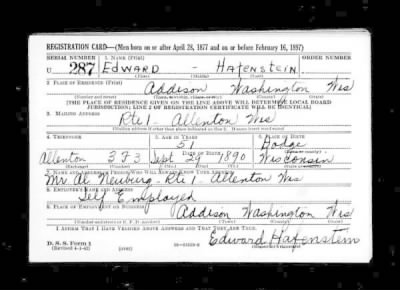 REGISTRATION CARD—(Men born on or after April 28, 1877 and on or before February 16, 1897)
SERIAL NUMBER 1. NAME (Print) ORDER NUMBER
U 287 EDWARD - HAFENSTEIN
(First) (Middle) (Last)
2. PLACE OF RESIDENCE (Print)
Addison Washington Wis
[THE PLACE OF RESIDENCE GIVEN ON THE LINE ABOVE WILL DETERMINE LOCAL BOARD
JURISDICTION; LINE 2 OF REGISTRATION CERTIFICATE WILL BE IDENTICAL]
3. MAILING ADDRESS
Rte 1 - Allenton Wis
[Mailing address if other than place indicated on line 2. If same insert word same]
4. TELEPHONE 5. AGE IN YEARS 6. PLACE OF BIRTH
51 Dodge
DATE OF BIRTH
Allenton 373 Sept 29 1890 Wisconsin
(Exchange) (Number) (Mo.) (Day) (Yr.) (State or country)
7. NAME AND ADDRESS OF PERSON WHO WILL ALWAYS KNOW YOUR ADDRESS
Mr Al. Neuburg - Rte 1 - Allenton Wis
8. EMPLOYER'S NAME AND ADDRESS
Self Employed
9. PLACE OF EMPLOYMENT OR BUSINESS
Addison Washington Wis
(Number and street or R. F. D. number) (Town) (County) (State)
I AFFIRM THAT I HAVE VERIFIED ABOVE ANSWERS AND THAT THEY ARE TRUE.
Edward Hafenstein
D. S. S. Form 1
(Revised 4-1-42) (over)